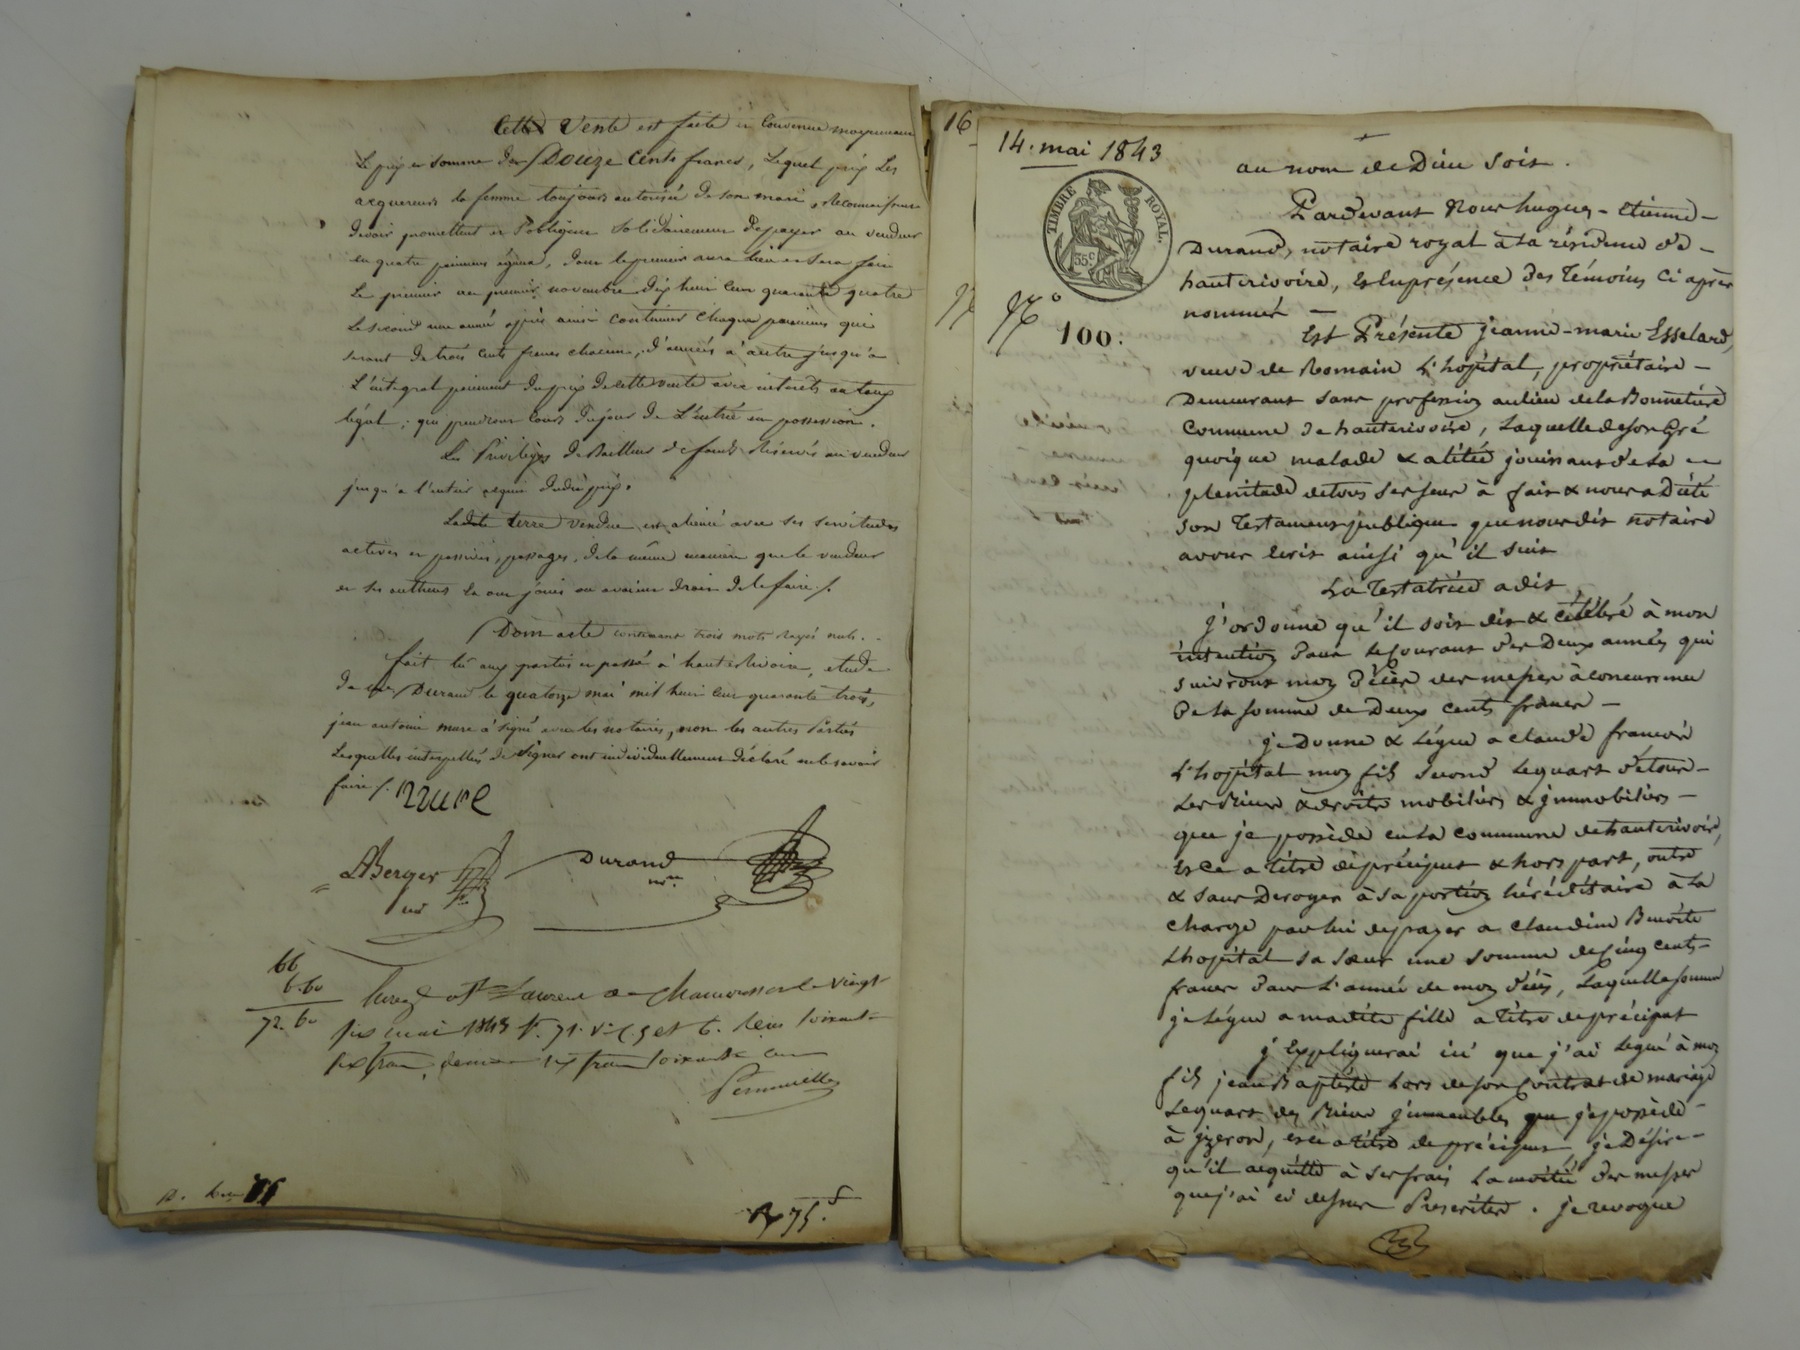 Cette Vente est faite et Convenue moyennant
Le prix et Somme de Douze Cents francs, Lequel prix Les
acquereurs la femme toujours autorisée de son mari, Reconnaissent
devoir promettent et s'obligent Solidairement de payer au vendeur
en quatre paiemens égaux, dont le premier aura lieu et sera fait
Le premier novembre dix huit cent quarante quatre
Le second une année après ainsi continuer chaque paiemens qui
seront de trois cents francs chacun, d'années à autre jusqu'à
L'integral paiement du prix de cette vente avec interets au taux
légal, qui prendront Cours du jour de L'entrée en possession.
Le Privilège de Bailleur de fonds Réservé au vendeur
jusqu'a l'entier acquit dudit prix.
Ladite terre vendue est aliénée avec ses servitudes
actives et passives, passages, de la même manière que le vendeur
et ses autheurs en ont joui ou avaient droit de le faire /.
Dont acte contenant trois mots rayés nuls.
fait lu aux parties et passé à hauterivoire, etude
de Durand le quatorze mai mil huit cent quarante trois,
jean antoine mure à signé avec les notaires, non les autres Parties
Lesquelles interpellées de signer ont individuellement déclaré ne le savoir
faire /. mure
Berger
Durand
nre
66
6.60
72.60
Enregé à St Laurent de Chamousset le vingt
six mai 1843 f. 71. v. c. 5 et 6. Reçu soixante
six francs, decime six francs soixante cen
R. 75
16
14. mai 1843
TIMBRE ROYAL.
35 c
No
100:
au nom de Dieu soit.
Pardevant Nous hugues-Etienne-
Durand, notaire royal à la résidence de-
hauterivoire, Et En présence des Témoins Ci après
nommés -
Est Présente jeanne-marie Esselard,
veuve de Romain L'hopital, propriétaire-
Demeurant sans profession au lieu de la Bonnetière
Commune de hauterivoire, Laquelle de son Gré
quoique malade & alitée jouissant de la -
plenitude de tous ses sens à fait & nous a Dicté
son Testament publique que nous dit notaire
avons ecrit ainsi qu'il suit
La Testatrice a dit
j'ordonne qu'il soit dit & célébré à mon
intention dans le courant des Deux années qui
suivront mon Décès des messes à concurrence
De la somme de Deux cents francs -
je Donne & Légue a claude francois
L'hopital mon fils second Le quart de tous-
Les Biens & droits mobiliers & jmmobiliers-
que je possède en la commune de hauterivoire,
Et ce a titre de préciput & hors part, outre
& sans Deroger à sa portion héréditaire à la
charge par lui de payer a claudine Benoite
L'hopital sa sœur une somme de Cinq cents-
francs dans L'année de mon décès, Laquelle somme
je Légue a madite fille a titre de préciput
j'Expliquerai ici que j'ai Legué à mon
fils jean Baptiste Lors de son contrat de mariage
Le quart des Biens jmmeubles que je possède-
à jzeron, et ce a titre de préciput, je Désire-
qu'il acquitte à ses frais La moitié des messes
que j'ai ci dessus Prescrites. je revoque